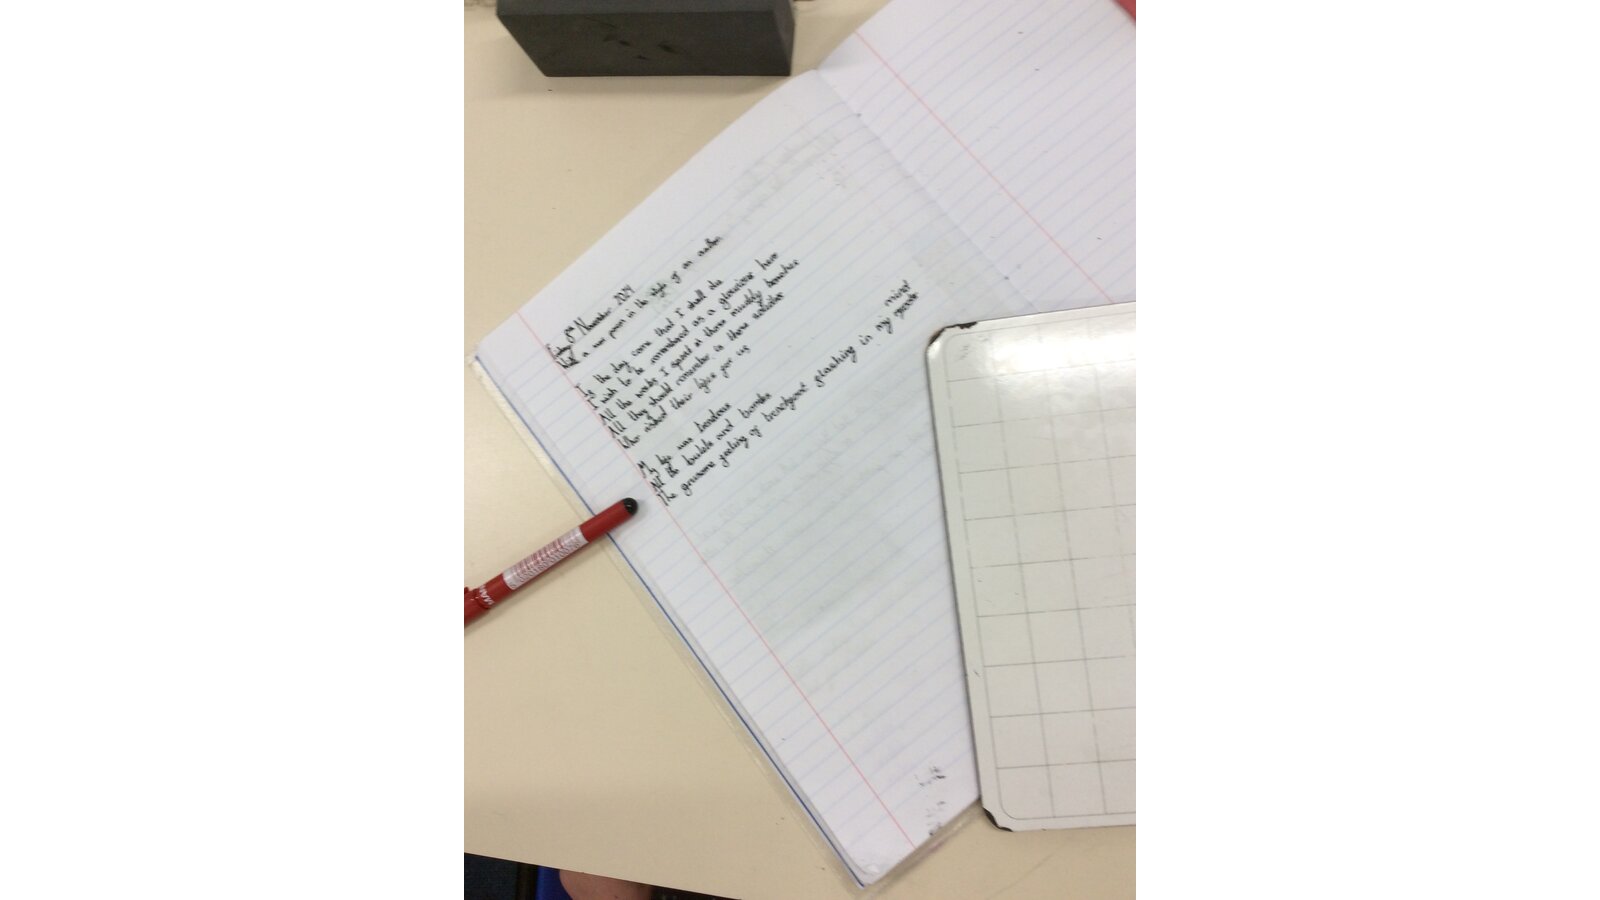 Friday 8th November 2024
a war poem in the style of an author
If the day come that I shall die
I wish to be remembered as a glourious hero
All the weeks I spent at those muddy trenches
All they should remember is there soldier
Who risked their lifes for us
My life was
All the bullets and bombs
The gruesome feeling of trenchfoot flashing in my
mind